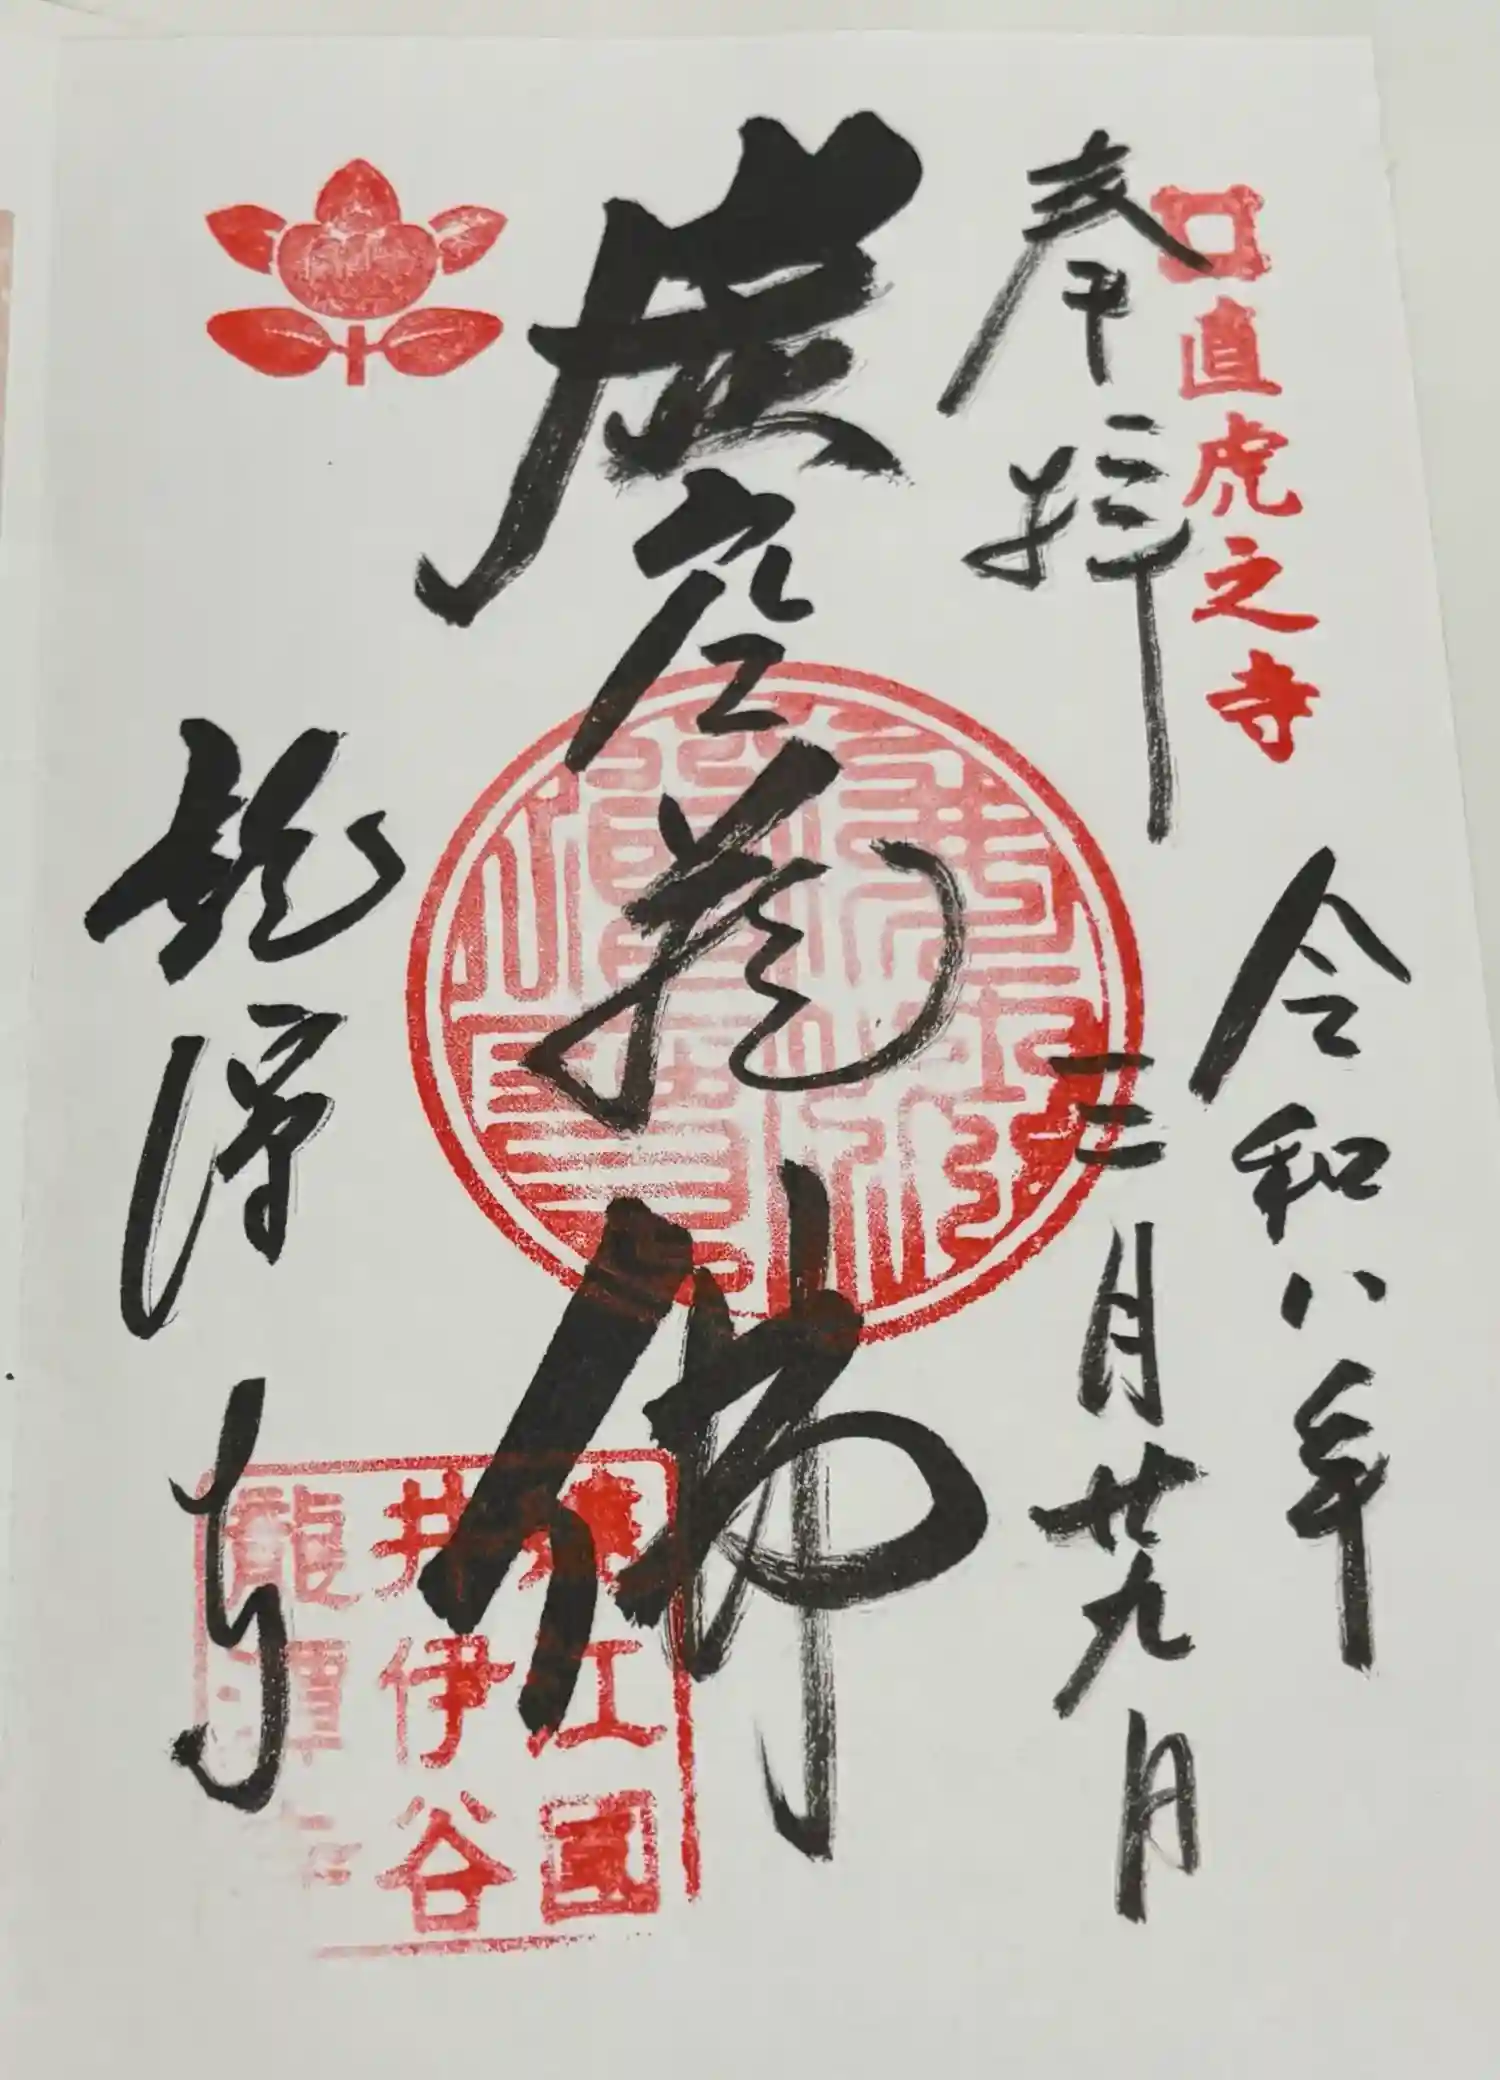 直虎之寺
奉拝
令和八年
三月廿九日
虚空蔵佛
龍潭寺
遠江國
井伊谷
龍潭寺